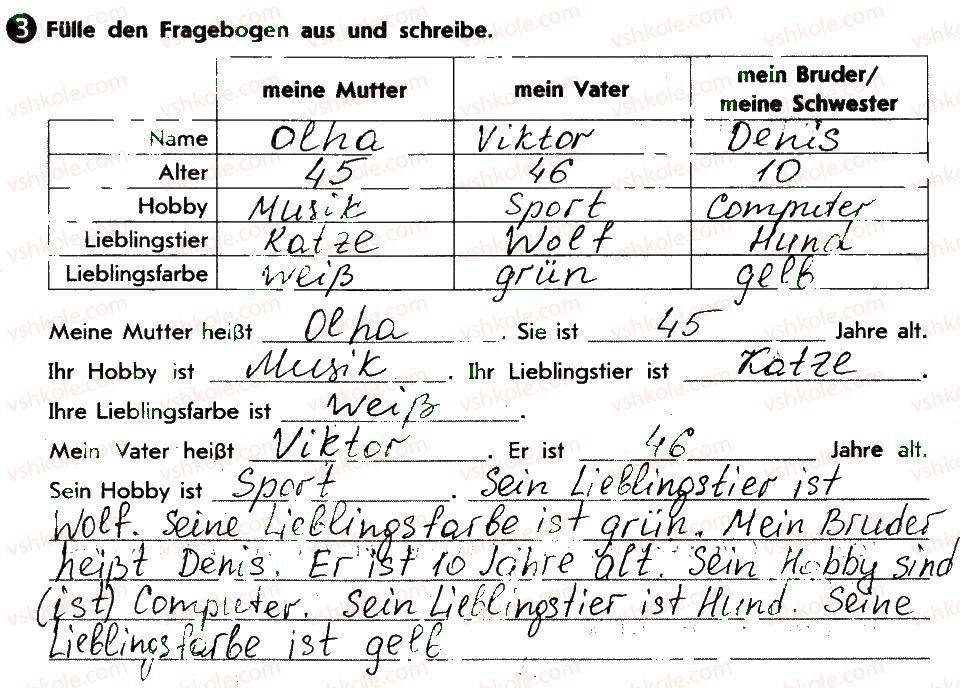 3 Fülle den Fragebogen aus und schreibe.
meine Mutter mein Vater mein Bruder/
meine Schwester
Name Olha Viktor Denis
Alter 45 46 10
Hobby Musik Sport Computer
Lieblingstier Katze Wolf Hund
Lieblingsfarbe weiß grün gelb
Meine Mutter heißt Olha. Sie ist 45 Jahre alt.
Ihr Hobby ist Musik. Ihr Lieblingstier ist Katze.
Ihre Lieblingsfarbe ist weiß.
Mein Vater heißt Viktor. Er ist 46 Jahre alt.
Sein Hobby ist Sport. Sein Lieblingstier ist
Wolf. Seine Lieblingsfarbe ist grün. Mein Bruder
heißt Denis. Er ist 10 Jahre alt. Sein Hobby sind
(ist) Computer. Sein Lieblingstier ist Hund. Seine
Lieblingsfarbe ist gelb
vshkole.com